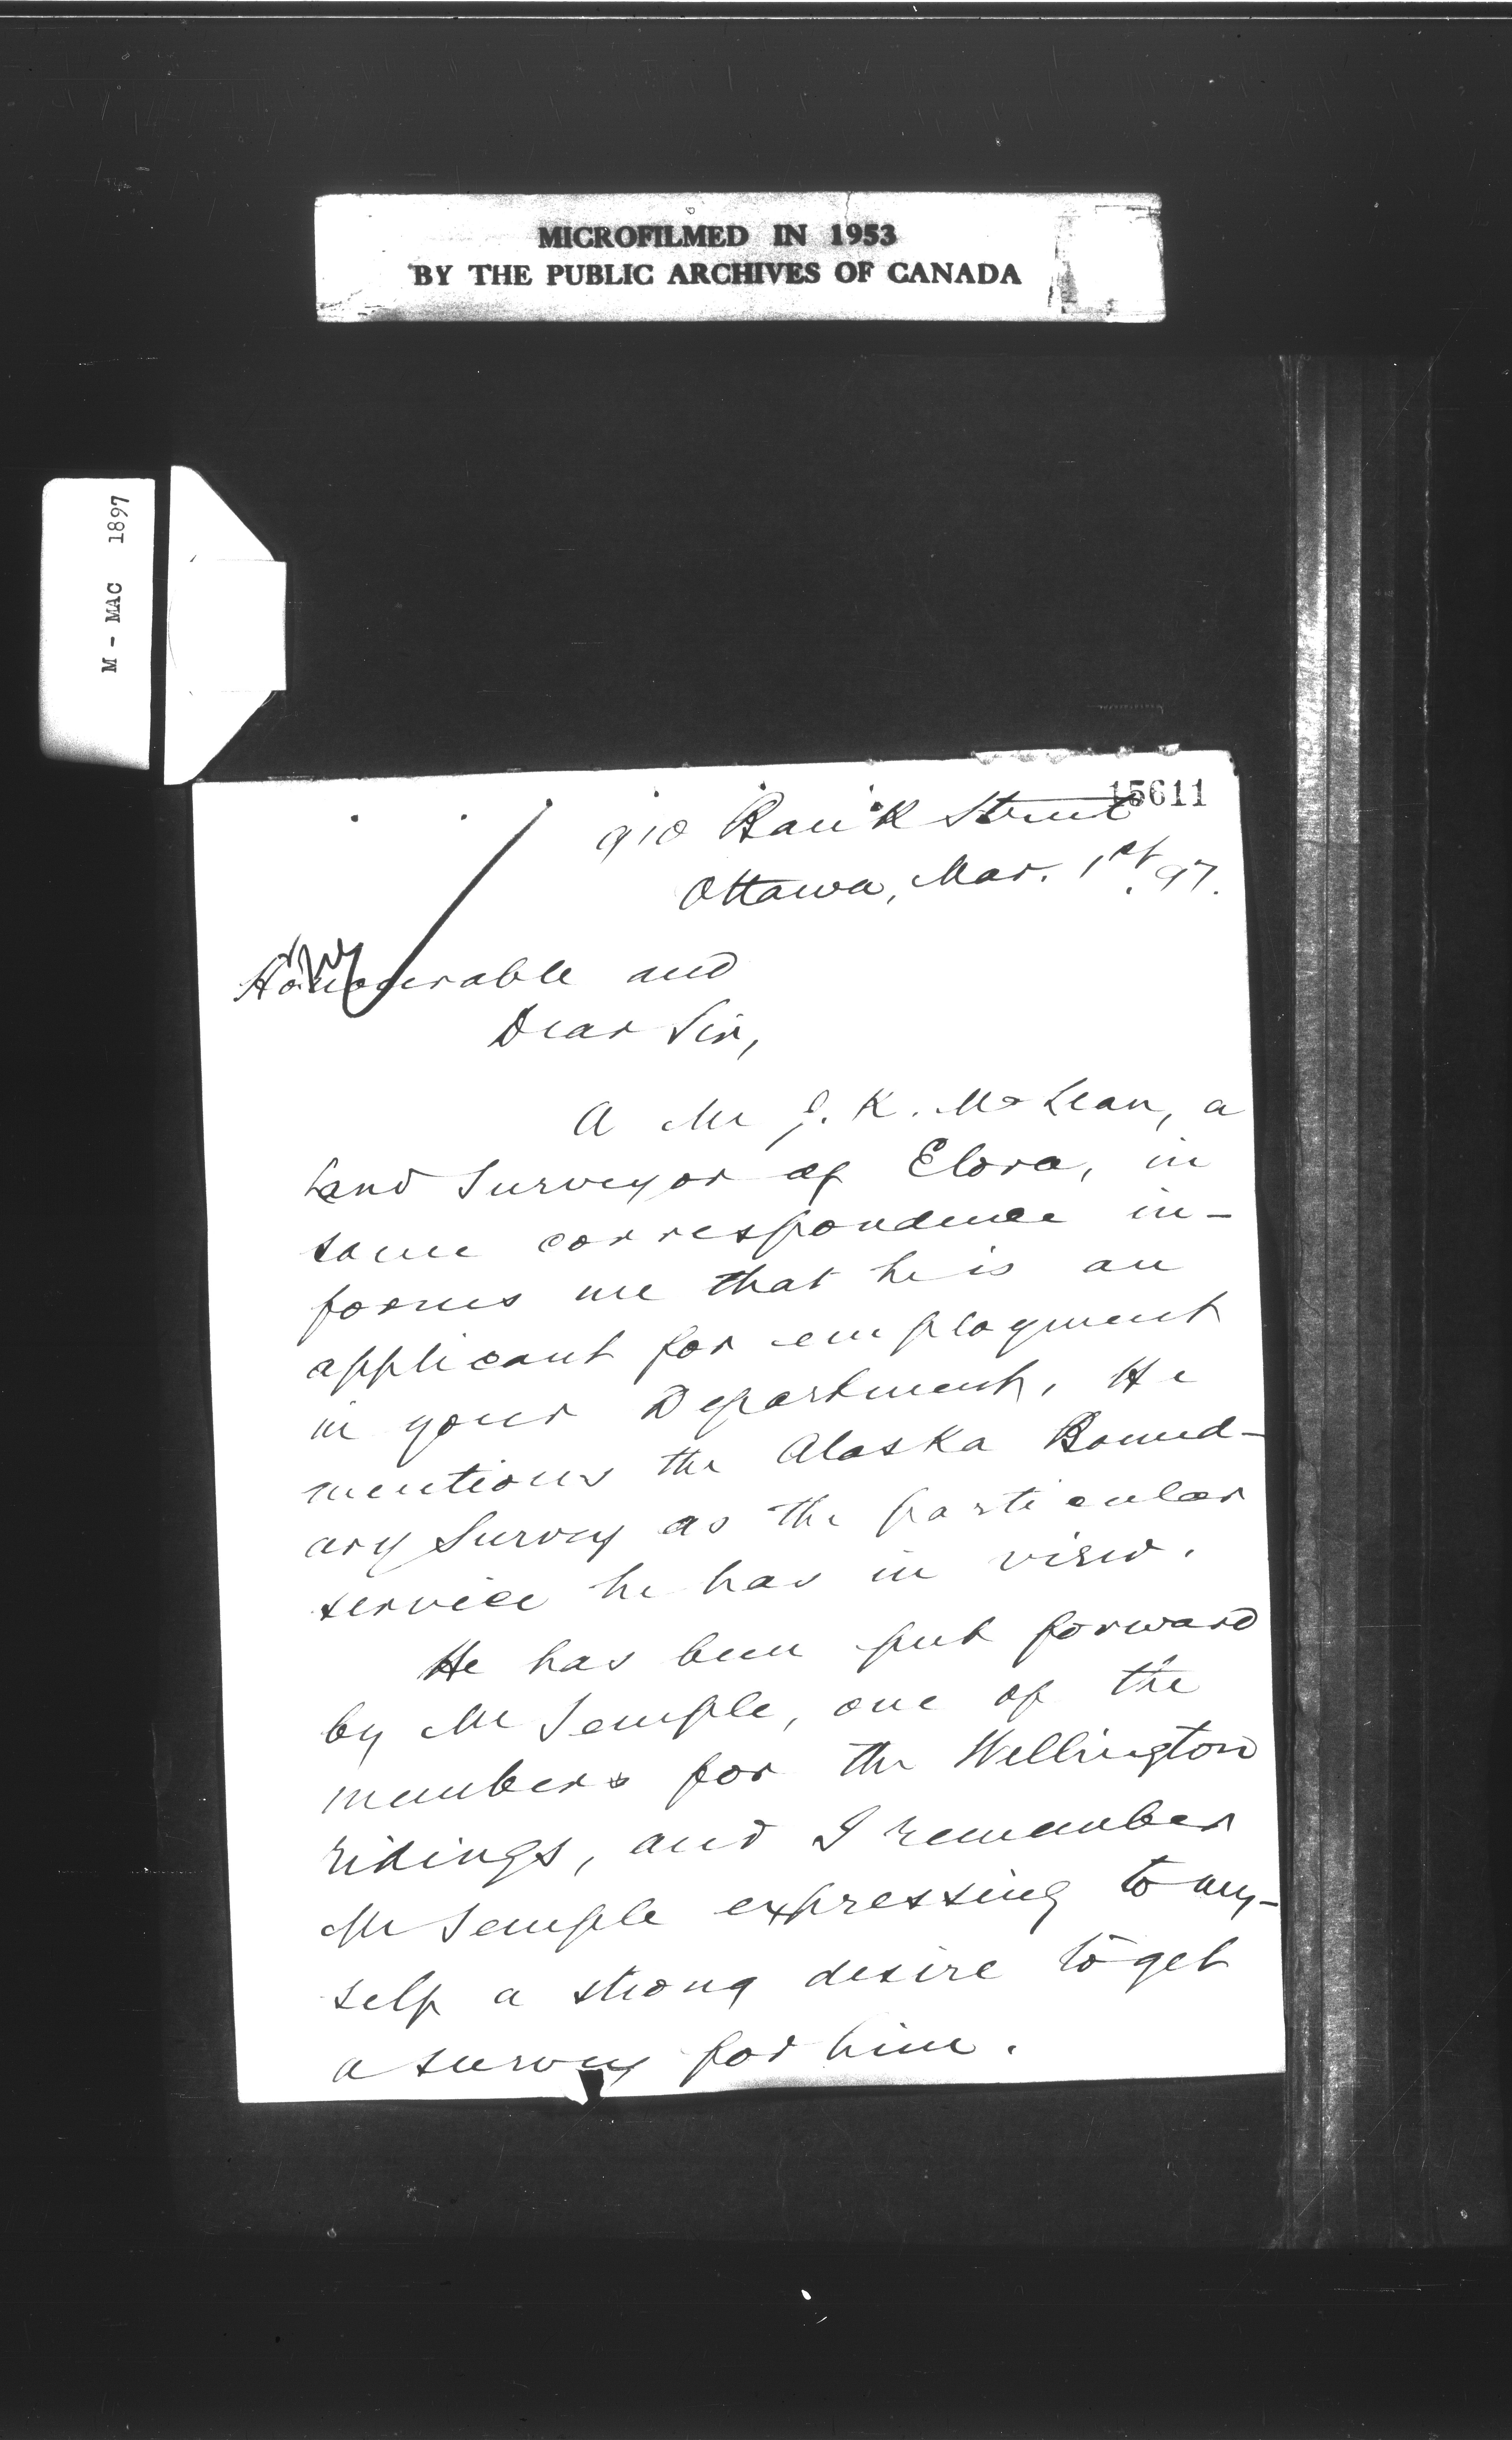 MICROFILMED IN 1953
BY THE PUBLIC ARCHIVES OF CANADA
M - MAC 1897
15611
910 Bank Street
Ottawa, Mar. 1st. 97.
Honourable and
Dear Sir,
A Mr J. K. McLean, a
Land Surveyor of Elora, in
some correspondence in-
forms me that he is an
applicant for employment
in your Department. He
mentions the Alaska Bound-
ary Survey as the particular
service he has in view.
He has been put forward
by Mr Semple, one of the
members for the Wellington
ridings, and I remember
Mr Semple expressing to my-
self a strong desire to get
a survey for him.